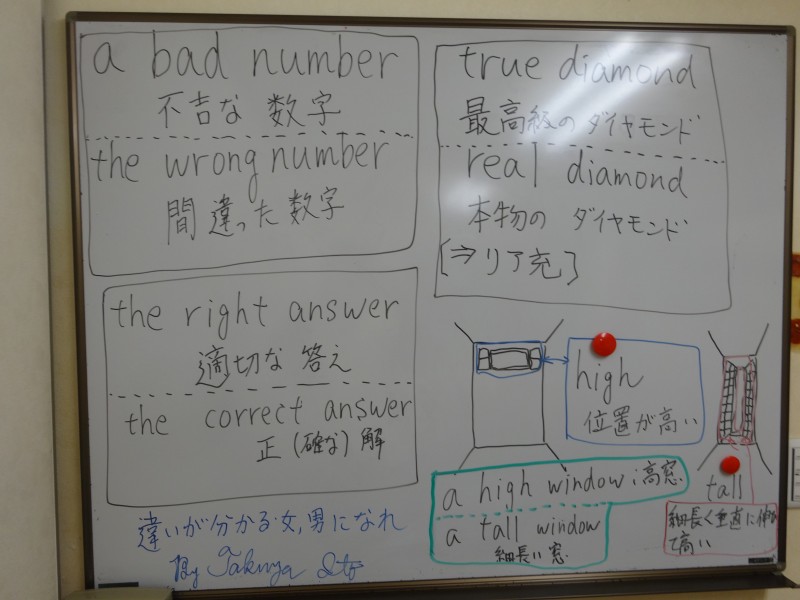 a bad number
不吉な 数字
the wrong number
間違った数字
true diamond
最高級のダイヤモンド
real diamond
本物の ダイヤモンド
[⇒リア充]
the right answer
適切な 答え
the correct answer
正(確な)解
high
位置が高い
tall
細長く垂直に伸びて高い
a high window:高窓
a tall window
細長い窓
違いが分かる女,男になれ
By Takuya Ito